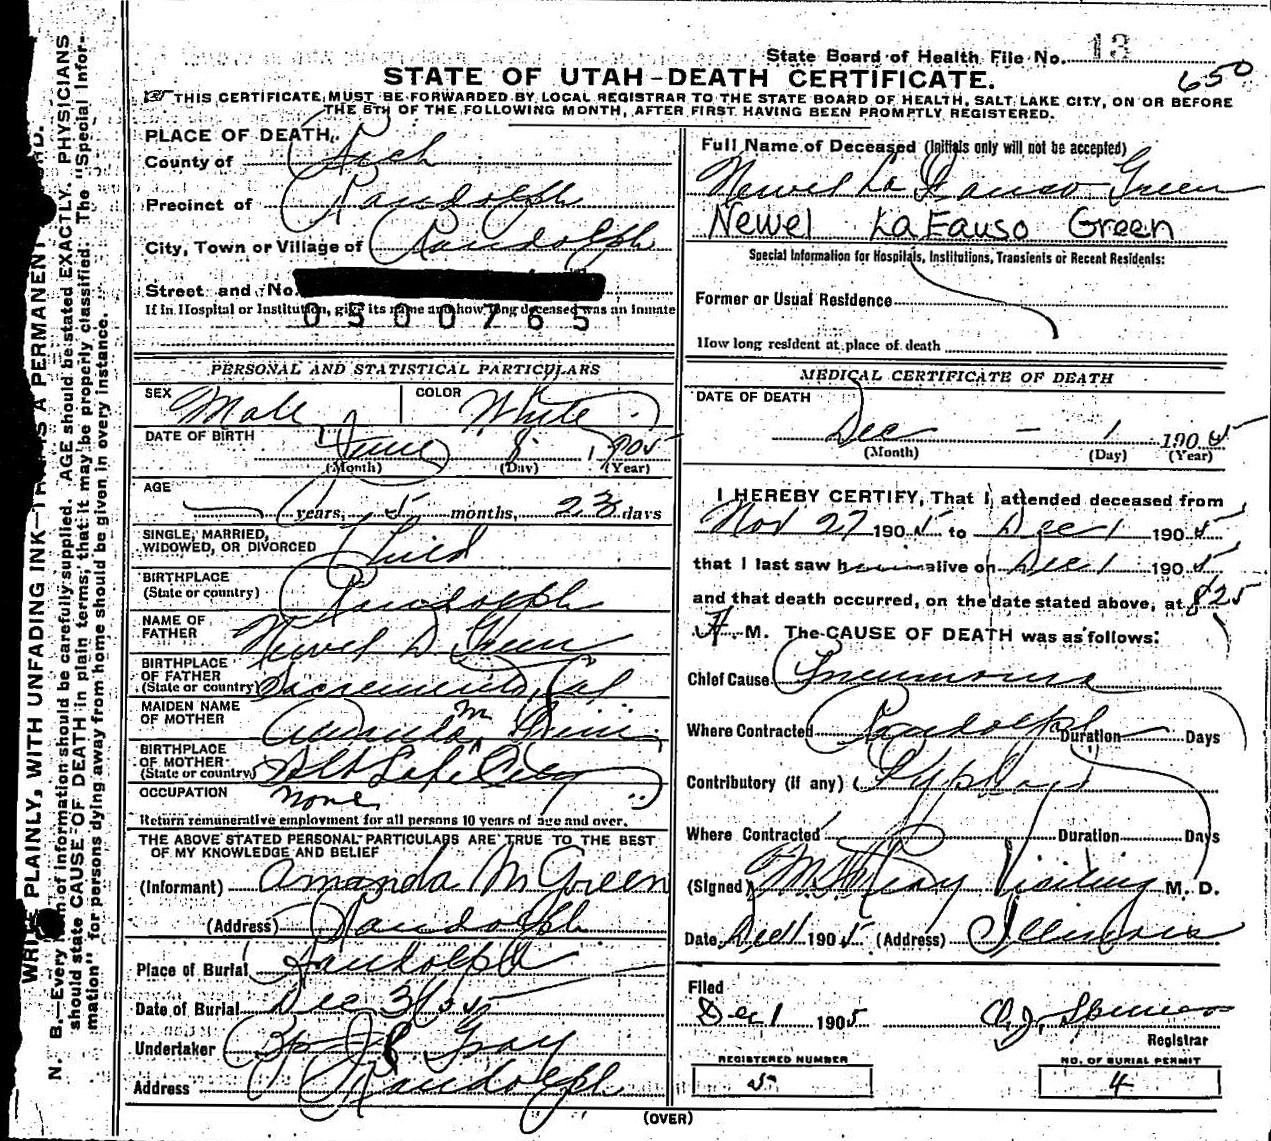 State Board of Health File No. 13
650
STATE OF UTAH-DEATH CERTIFICATE.
THIS CERTIFICATE MUST BE FORWARDED BY LOCAL REGISTRAR TO THE STATE BOARD OF HEALTH, SALT LAKE CITY, ON OR BEFORE
THE 5TH OF THE FOLLOWING MONTH, AFTER FIRST HAVING BEEN PROMPTLY REGISTERED.
PLACE OF DEATH,
County of Rich
Precinct of Randolph
City, Town or Village of Randolph
Street and No.
If in Hospital or Institution, give its name and how long deceased was an inmate
0500765
PERSONAL AND STATISTICAL PARTICULARS
SEX Male COLOR White
DATE OF BIRTH June 8 1905
(Month) (Day) (Year)
AGE
years, 5 months, 23 days
SINGLE, MARRIED,
WIDOWED, OR DIVORCED Child
BIRTHPLACE
(State or country) Randolph
NAME OF
FATHER Newel D Green
BIRTHPLACE
OF FATHER
(State or country) Sacremento, Cal
MAIDEN NAME
OF MOTHER Amanda M
BIRTHPLACE
OF MOTHER
(State or country) Salt Lake City
OCCUPATION None
Return remunerative employment for all persons 10 years of age and over.
THE ABOVE STATED PERSONAL PARTICULARS ARE TRUE TO THE BEST
OF MY KNOWLEDGE AND BELIEF
(Informant) Amanda M Green
(Address) Randolph
Place of Burial Randolph
Date of Burial Dec 3 1905
Undertaker Gray
Address Randolph
Full Name of Deceased (Initials only will not be accepted)
Newel La Fauso Green
Newel LaFauso Green
Special Information for Hospitals, Institutions, Transients or Recent Residents:
Former or Usual Residence
How long resident at place of death
MEDICAL CERTIFICATE OF DEATH
DATE OF DEATH
Dec - 1 1905
(Month) (Day) (Year)
I HEREBY CERTIFY, That I attended deceased from
Nov 27 1905 to Dec 1 1905
that I last saw him alive on Dec 1 1905
and that death occurred, on the date stated above, at 8:25
M. The CAUSE OF DEATH was as follows:
Chief Cause Pneumonia
Where Contracted Randolph Duration Days
Contributory (if any) Typhoid
Where Contracted Duration Days
(Signed) Visiting M. D.
Date Dec 1 1905 (Address) Illinois
Filed
Dec 1 1905 O. J. Spencer
Registrar
REGISTERED NUMBER
5
NO. OF BURIAL PERMIT
4
(OVER)
N. B.—Every item of information should be carefully supplied. AGE should be stated EXACTLY. PHYSICIANS
should state CAUSE OF DEATH in plain terms, that it may be properly classified. The "Special Infor-
mation" for persons dying away from home should be given in every instance.